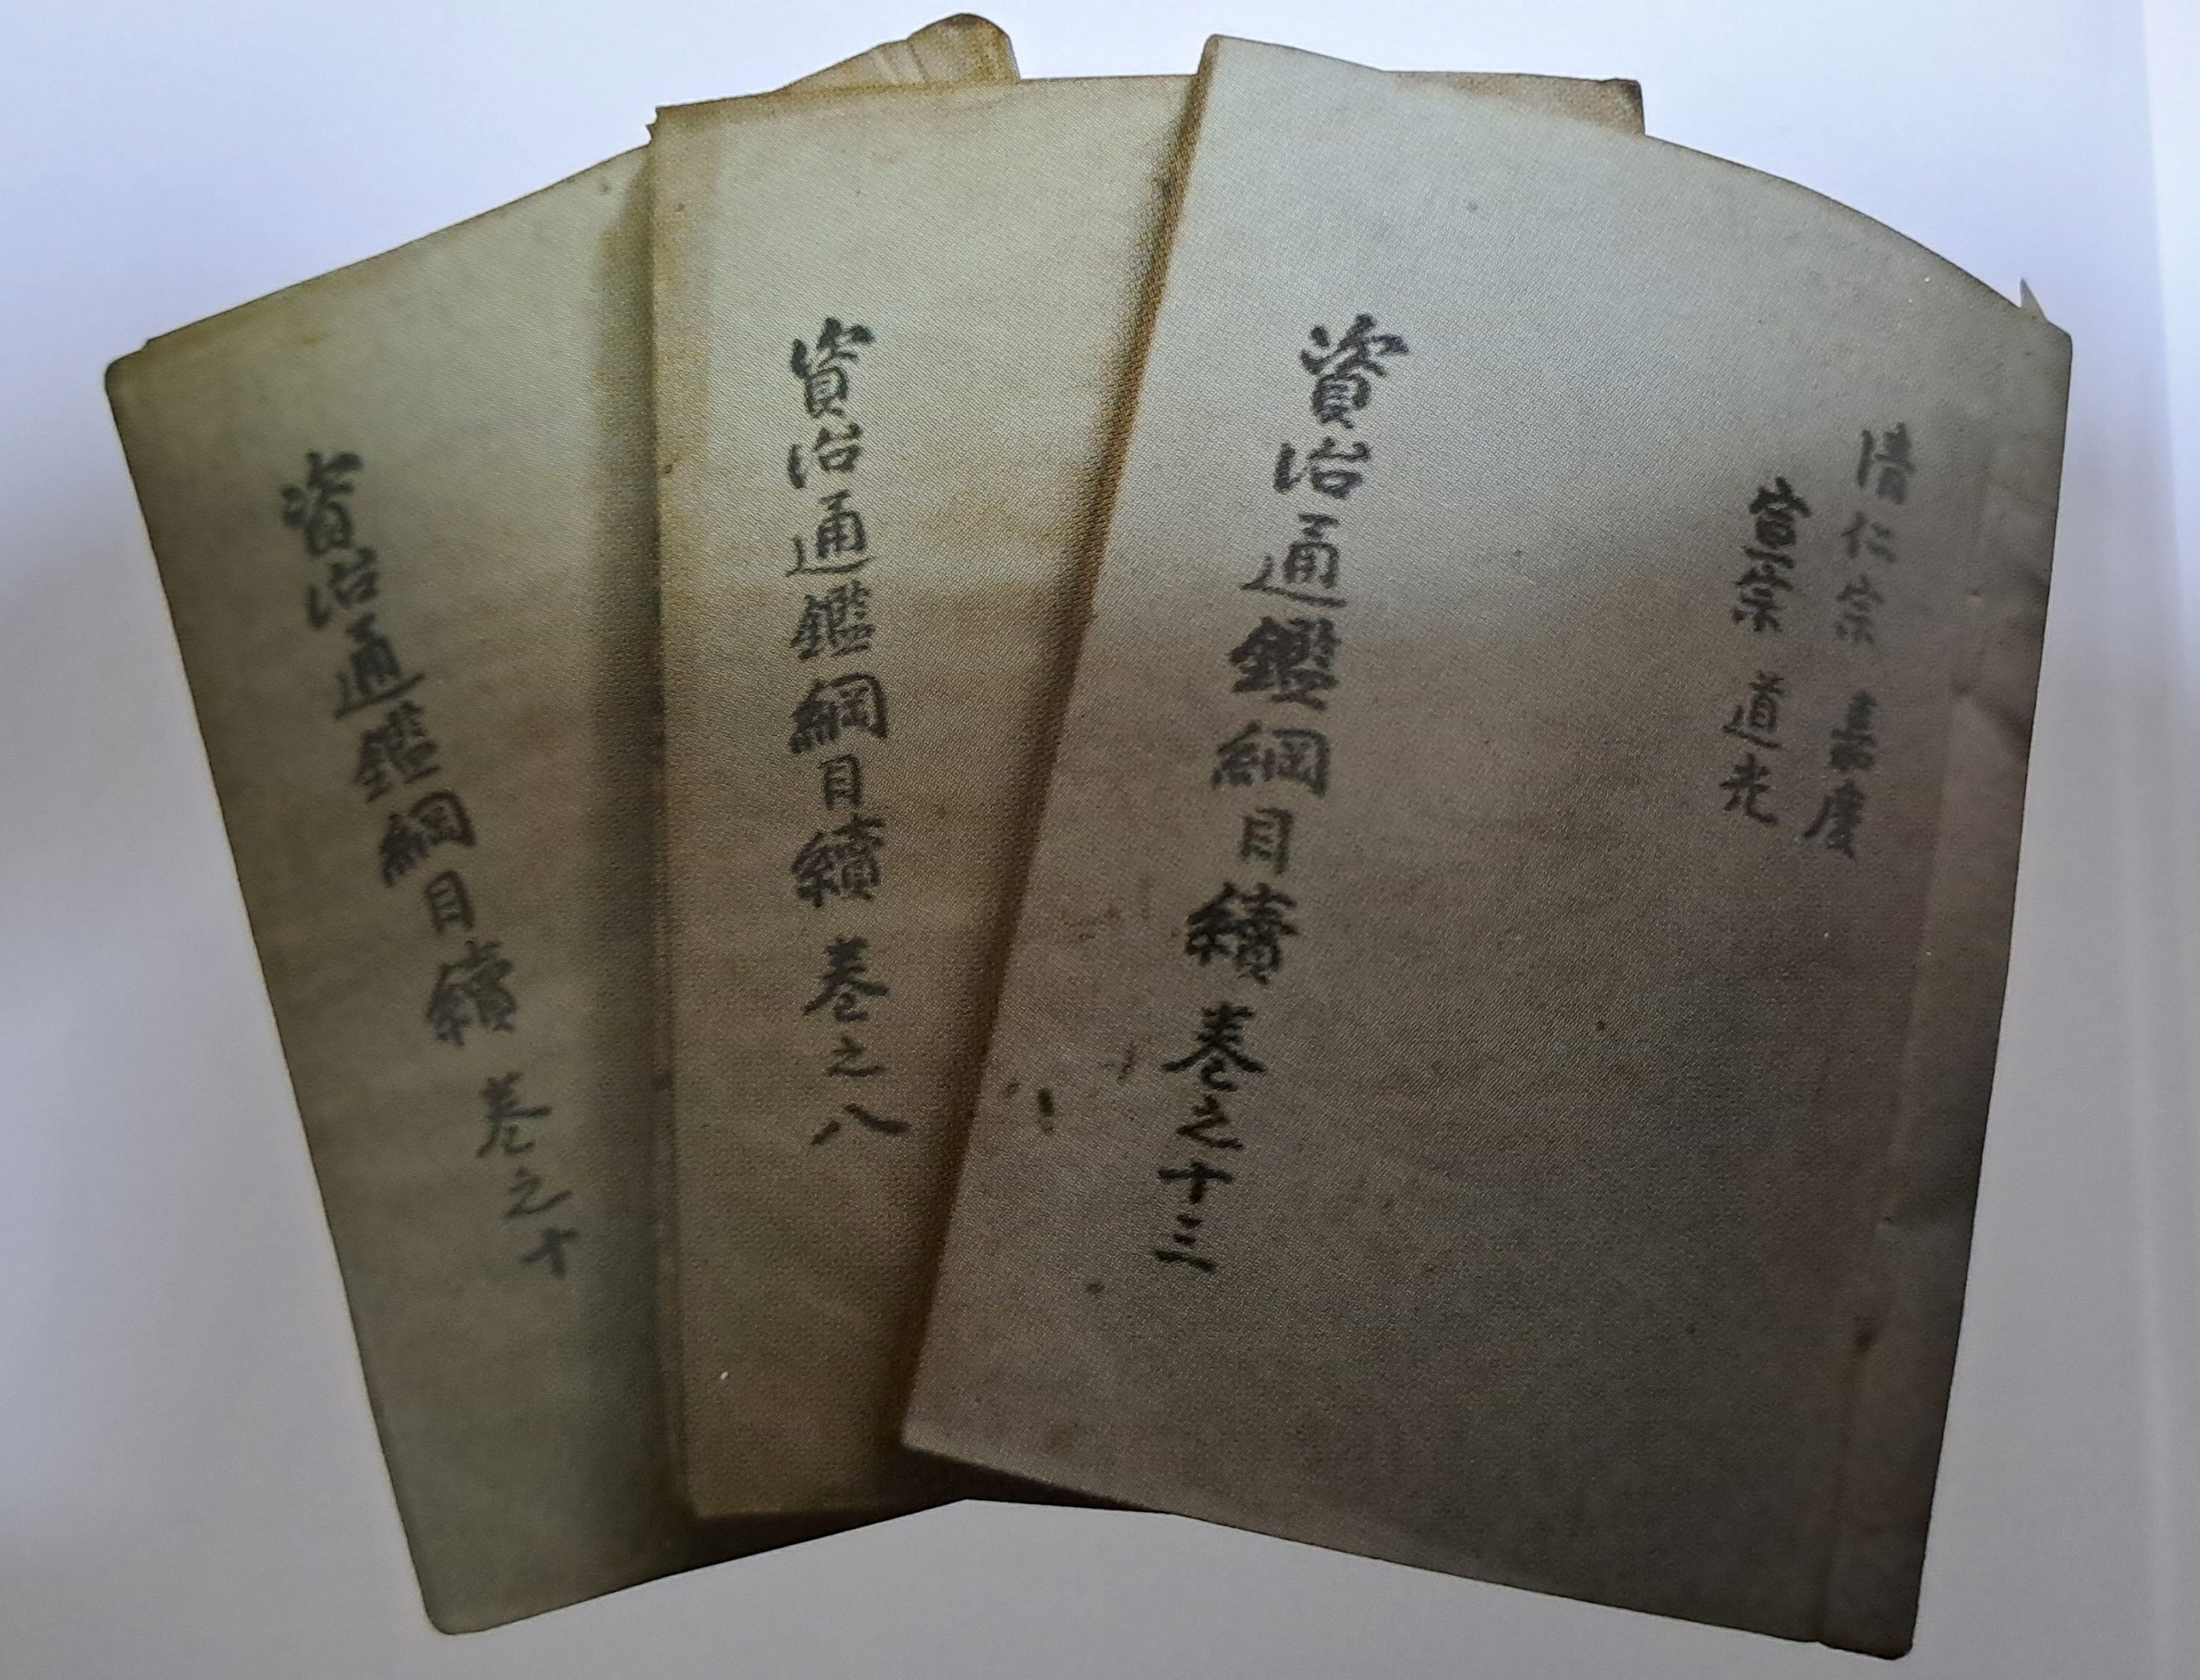 清仁宗 嘉慶
宣宗 道光
資治通鑑綱目續 巻之十三
資治通鑑綱目續 巻之八
資治通鑑綱目續 巻之十